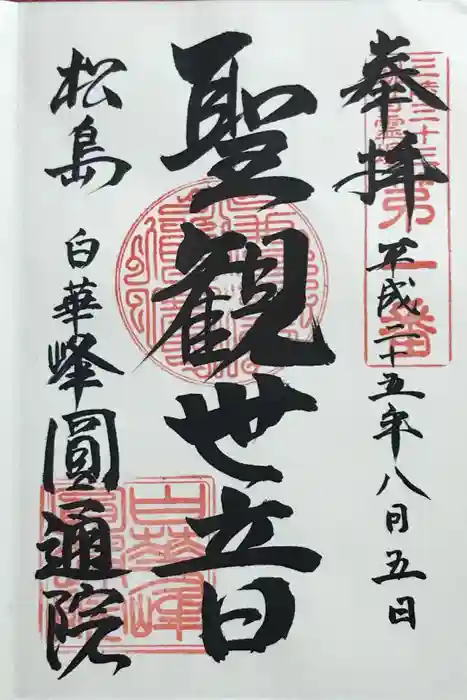 奉拝
平成二十五年八月五日
三陸三十三
霊場
第一番
聖観世音
松島
白華峰圓通院
白華峰